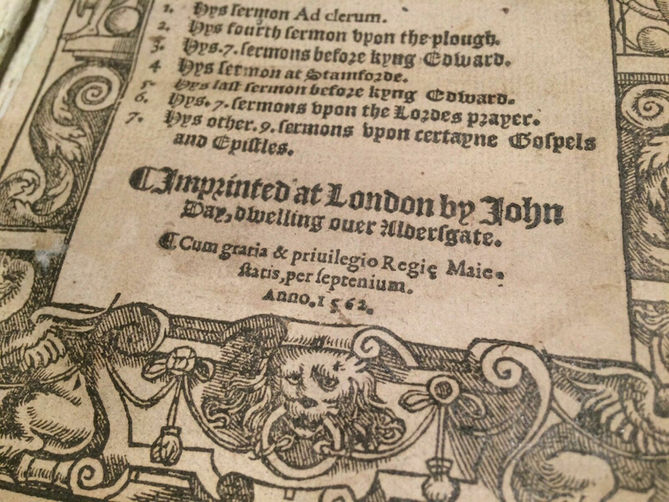 1. Hys ſermon Ad clerum.
2. Hys fourth ſermon vpon the plough.
3. Hys .7. ſermons before kyng Edward.
4 Hys ſermon at Stamforde.
5 Hys laſt ſermon before kyng Edward.
6. Hys .7. ſermons vpon the Lordes prayer.
7. Hys other .9. ſermons vpon certayne Goſpels
and Epiſtles.
¶Imprinted at London by John
Day, dwelling ouer Alderſgate.
¶Cum gratia & priuilegio Regię Maie-
ſtatis, per ſeptenium.
Anno. 1562.